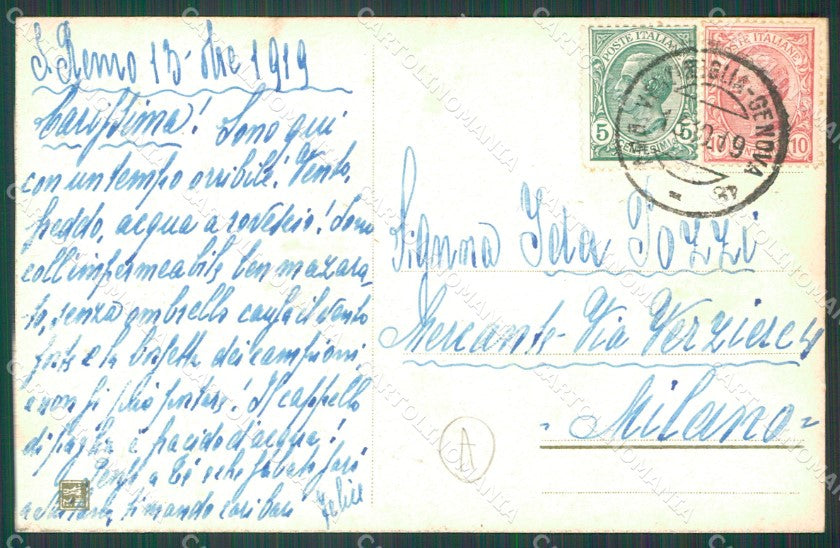 S. Remo 13 - 9bre 1919
Carissima! Sono qui
con un tempo orribile! Vento,
freddo, acqua a rovescio! Sono
coll'impermeabile ben
senza ombrello causa il vento
forte e la borsetta dei campioni,
e non si può portare! Il cappello
di paglia è fracido d'acqua!
Penso a te e che sabato sarò
a Milano, ti mando cari baci
Felice
POSTE ITALIANE
5
CENTESIMI
POSTE ITALIANE
10
VENTIMIGLIA-GENOVA
48
Signora Ida Pozzi
Mercante - Via Verziere 4
- Milano -
A
CARTOLINOMANIA